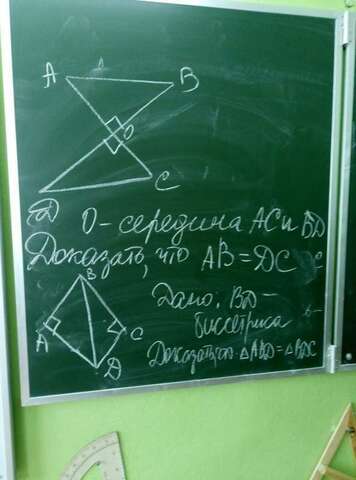 A B
O
C
D O-середина AC и BD
Доказать, что AB=DC
B
Дано: BD-
биссектриса
A C
D
Доказать: △ABD=△BDC